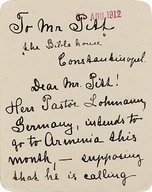 APR 1912
To Mr. Pitt
the Bible house,
Constantinopel.
Dear Mr. Pitt!
Herr Pastor Lohmann,
Germany, intends to
go to Armenia this
month — supposing
that he is calling